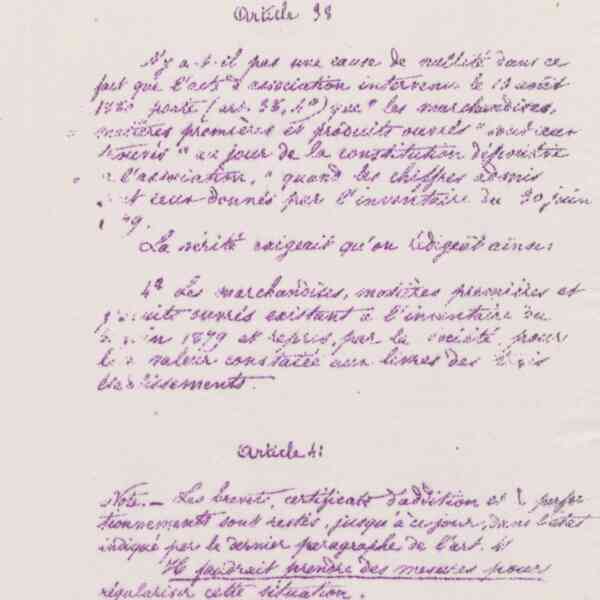 Article 38
N'y a-t-il pas une cause de nullité dans ce
fait que l'acte d'association intervenu le 13 août
1880 porte (art. 38, 4º) que "les marchandises,
matières premières et produits ouvrés
" au jour de la constitution définitive
l'association, " quand les chiffres admis
sont ceux donnés par l'inventaire du 30 juin
La vérité exigeait qu'on rédigeât ainsi:
4º Les marchandises, matières premières et
produits ouvrés existant à l'inventaire du
juin 1879 et repris, par la société, pour
la valeur constatée aux livres des trois
établissements.
Article 41
Note. — Les brevets, certificats d'addition et de perfec
tionnements sont restés, jusqu'à ce jour, dans l'état
indiqué par le dernier paragraphe de l'art.
Il faudrait prendre des mesures pour
régulariser cette situation.